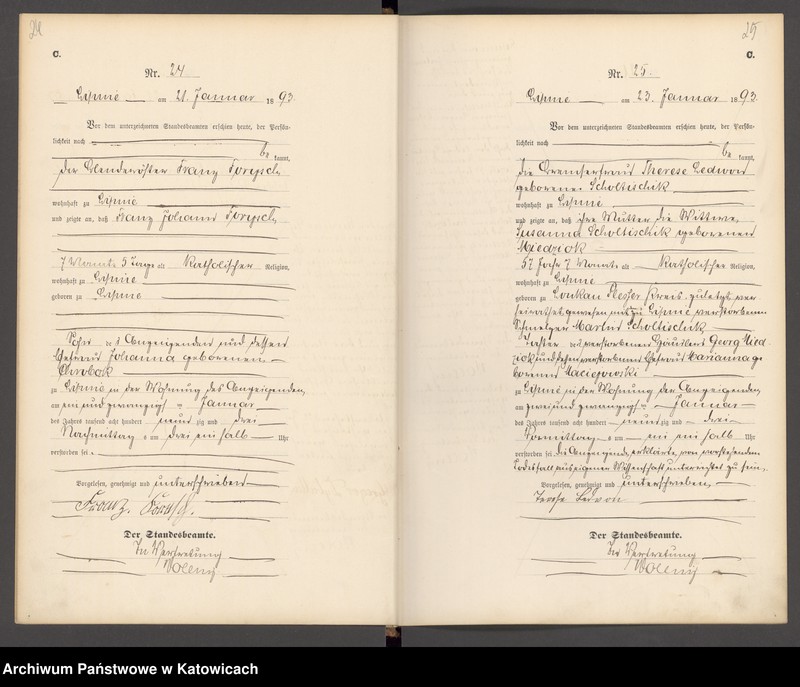 24
C.
Nr. 24
Lipine am 21. Januar 1893.
Vor dem unterzeichneten Standesbeamten erschien heute, der Persön-
lichkeit nach
be kannt,
der Blenderöster Franz
wohnhaft zu Lipine
und zeigte an, daß Franz Johann
7 Monate 5 Tage alt katholischer Religion,
wohnhaft zu Lipine
geboren zu Lipine
Sohn des Anzeigenden und dessen
Ehefrau Johanna geborenen
Chrobok
zu Lipine in der Wohnung des Anzeigenden,
am ein und zwanzigsten Januar
des Jahres tausend acht hundert neun zig und drei
Nachmittag um drei ein halb Uhr
verstorben sei.
Vorgelesen, genehmigt und unterschrieben
Franz
Der Standesbeamte.
In Vertretung
25
C.
Nr. 25.
Lipine am 23. Januar 1893.
Vor dem unterzeichneten Standesbeamten erschien heute, der Persön-
lichkeit nach
be kannt,
die Therese Ledwon
geborene Scholtischik
wohnhaft zu Lipine
und zeigte an, daß ihre Mutter die Wittwe,
Susanna Scholtischik geborenen
Miedziok
57 Jahr 7 Monate alt katholischer Religion,
wohnhaft zu Lipine
geboren zu Lonkau Plesser Kreis, zuletzt ver
heirathet gewesen mit zu Lipine verstorbenen
Schmelzer Martin Scholtischik
Tochter des verstorbenen Häuslers Georg Mied
ziok und dessen verstorbenen Ehefrau Marianna ge
borenen Maciejowski
zu Lipine in der Wohnung der Anzeigenden,
am zwei und zwanzigsten Januar
des Jahres tausend acht hundert neun zig und drei
Vormittag um ein ein halb Uhr
verstorben sei. die Anzeigende erklärte, von vorstehendem
Todesfall aus eigener Wissenschaft unterrichtet zu sein.
Vorgelesen, genehmigt und unterschrieben,
Terese Ledwon
Der Standesbeamte.
In Vertretung
Archiwum Państwowe w Katowicach